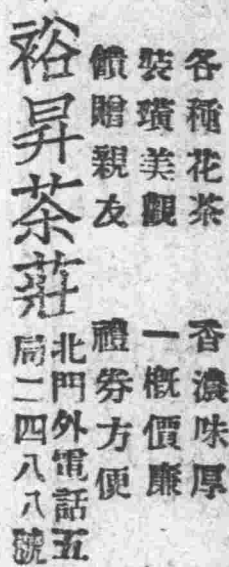 各種花茶　香濃味厚
裝璜美觀　一概價廉
餽贈親友　禮券方便
裕昇茶莊
北門外電話五
局二四八八號